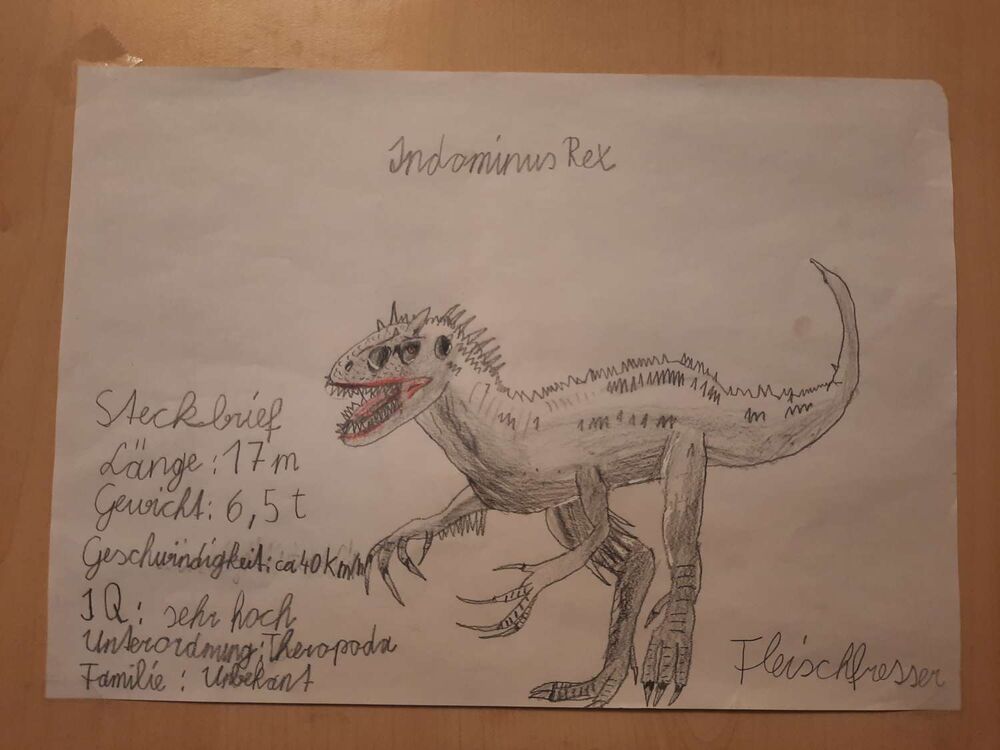 Indominus Rex
Steckbrief
Länge: 17 m
Gewicht: 6,5 t
Geschwindigkeit: ca 40 Km/h
IQ: sehr hoch
Unterordnung: Theropoda
Familie: Unbekant
Fleischfresser